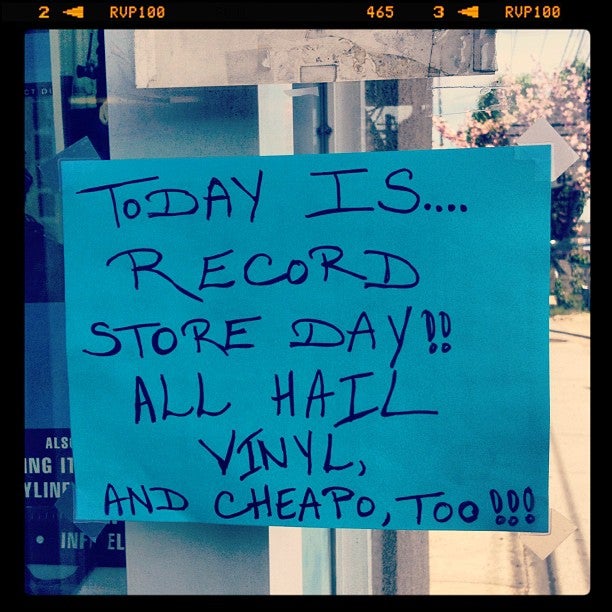 2 RVP100 465 3 RVP100
TODAY IS....
RECORD
STORE DAY!!
ALL HAIL
VINYL,
AND CHEAPO, TOO!!!
ALS
NG IT
YLIN
INF EL